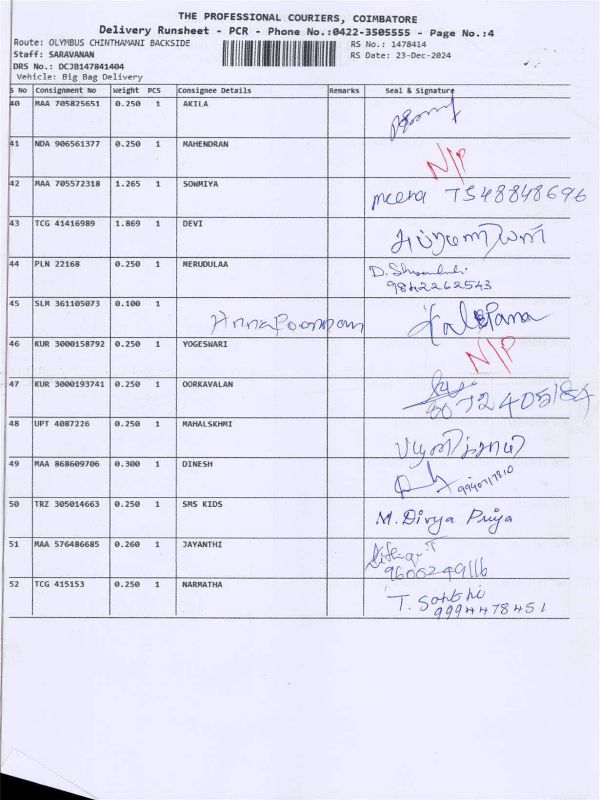 THE PROFESSIONAL COURIERS, COIMBATORE
Delivery Runsheet - PCR - Phone No.:0422-3505555 - Page No.:4
Route: OLYMBUS CHINTHAMANI BACKSIDE RS No.: 1478414
Staff: SARAVANAN RS Date: 23-Dec-2024
DRS No.: DCJB147841404
Vehicle: Big Bag Delivery
S No Consignment No Weight PCS Consignee Details Remarks Seal & Signature
40 MAA 705825651 0.250 1 AKILA
41 NDA 906561377 0.250 1 MAHENDRAN N/P
42 MAA 705572318 1.265 1 SOWMIYA meena 7548848696
43 TCG 41416989 1.869 1 DEVI
44 PLN 22168 0.250 1 MERUDULAA D.
9842262543
45 SLM 361105073 0.100 1 Kalpana
46 KUR 3000158792 0.250 1 YOGESWARI N/P
47 KUR 3000193741 0.250 1 OORKAVALAN
48 UPT 4087226 0.250 1 MAHALSKHMI
49 MAA 868609706 0.300 1 DINESH
50 TRZ 305014663 0.250 1 SMS KIDS M. Divya Priya
51 MAA 576486685 0.260 1 JAYANTHI
9600249116
52 TCG 415153 0.250 1 NARMATHA T. Sakthi
9994478451